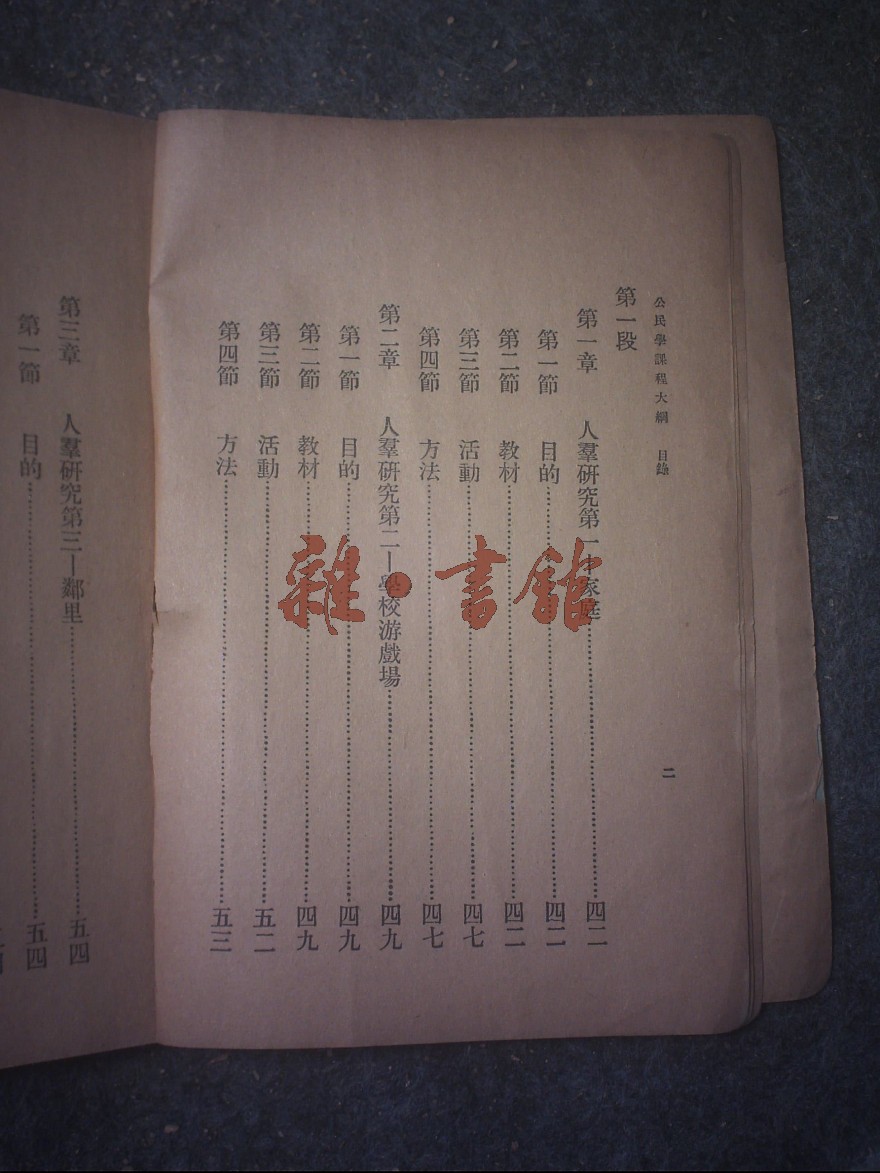 公民學課程大綱 目錄 二
第一段
第一章 人羣研究第一—家庭 四二
第一節 目的 四二
第二節 教材 四二
第三節 活動 四七
第四節 方法 四七
第二章 人羣研究第二—學校游戲場 四九
第一節 目的 四九
第二節 教材 四九
第三節 活動 五二
第四節 方法 五三
第三章 人羣研究第三—鄰里 五四
第一節 目的 五四
雜·書館